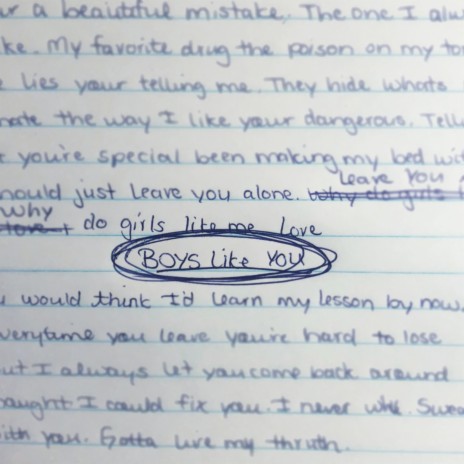 ur a beautiful mistake. The one I alw
ke. My favorite drug the poison on my to
e lies your telling me. They hide whats
nate the way I like your dangerous. Tell
t you're special been making my bed wit
Leave You
hould just leave you alone. Why do girls
Why
do girls like me love
BOYS Like YOU
u would think I'd learn my lesson by now.
verytime you leave you're hard to lose
ut I always let you come back around
hought I could fix you. I never will. Swea
ith you. Gotta live my thruth.